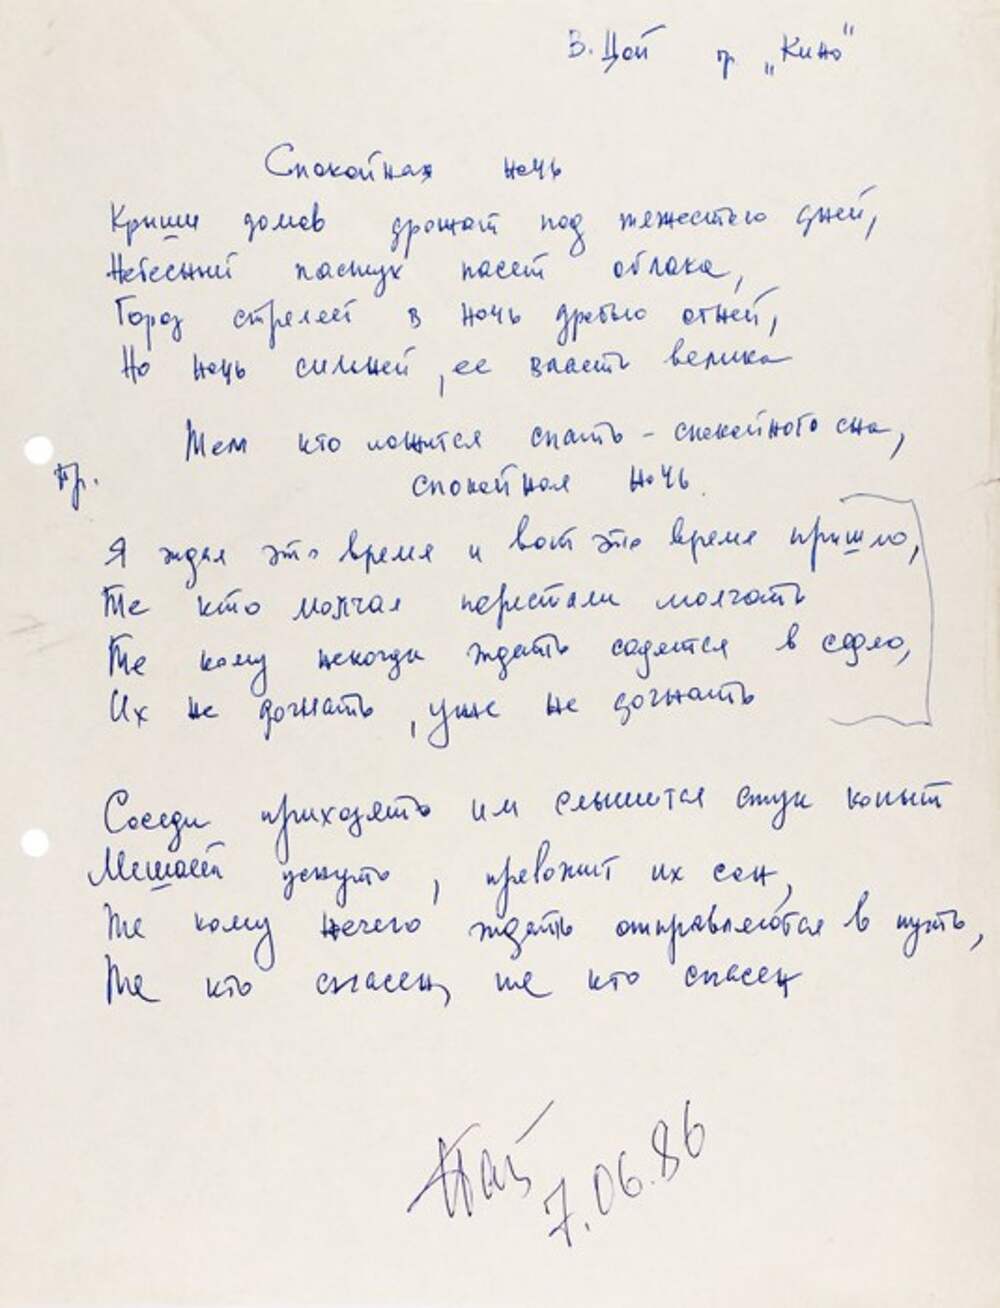 В. Цой гр „Кино"
Спокойная ночь
Крыши домов дрожат под тяжестью дней,
Небесный пастух пасёт облака,
Город стреляет в ночь дробью огней,
Но ночь сильней, ее власть велика
Тем кто ложится спать - спокойного сна,
Пр. спокойная ночь.
Я ждал это время и вот это время пришло,
Те кто молчал перестали молчать
Те кому некогда ждать садятся в седло,
Их не догнать, уже не догнать
Соседи приходят им слышится стук копыт
Мешает уснуть, тревожит их сон,
Те кому нечего ждать отправляются в путь,
Те кто спасен, те кто спасен
7.06.86